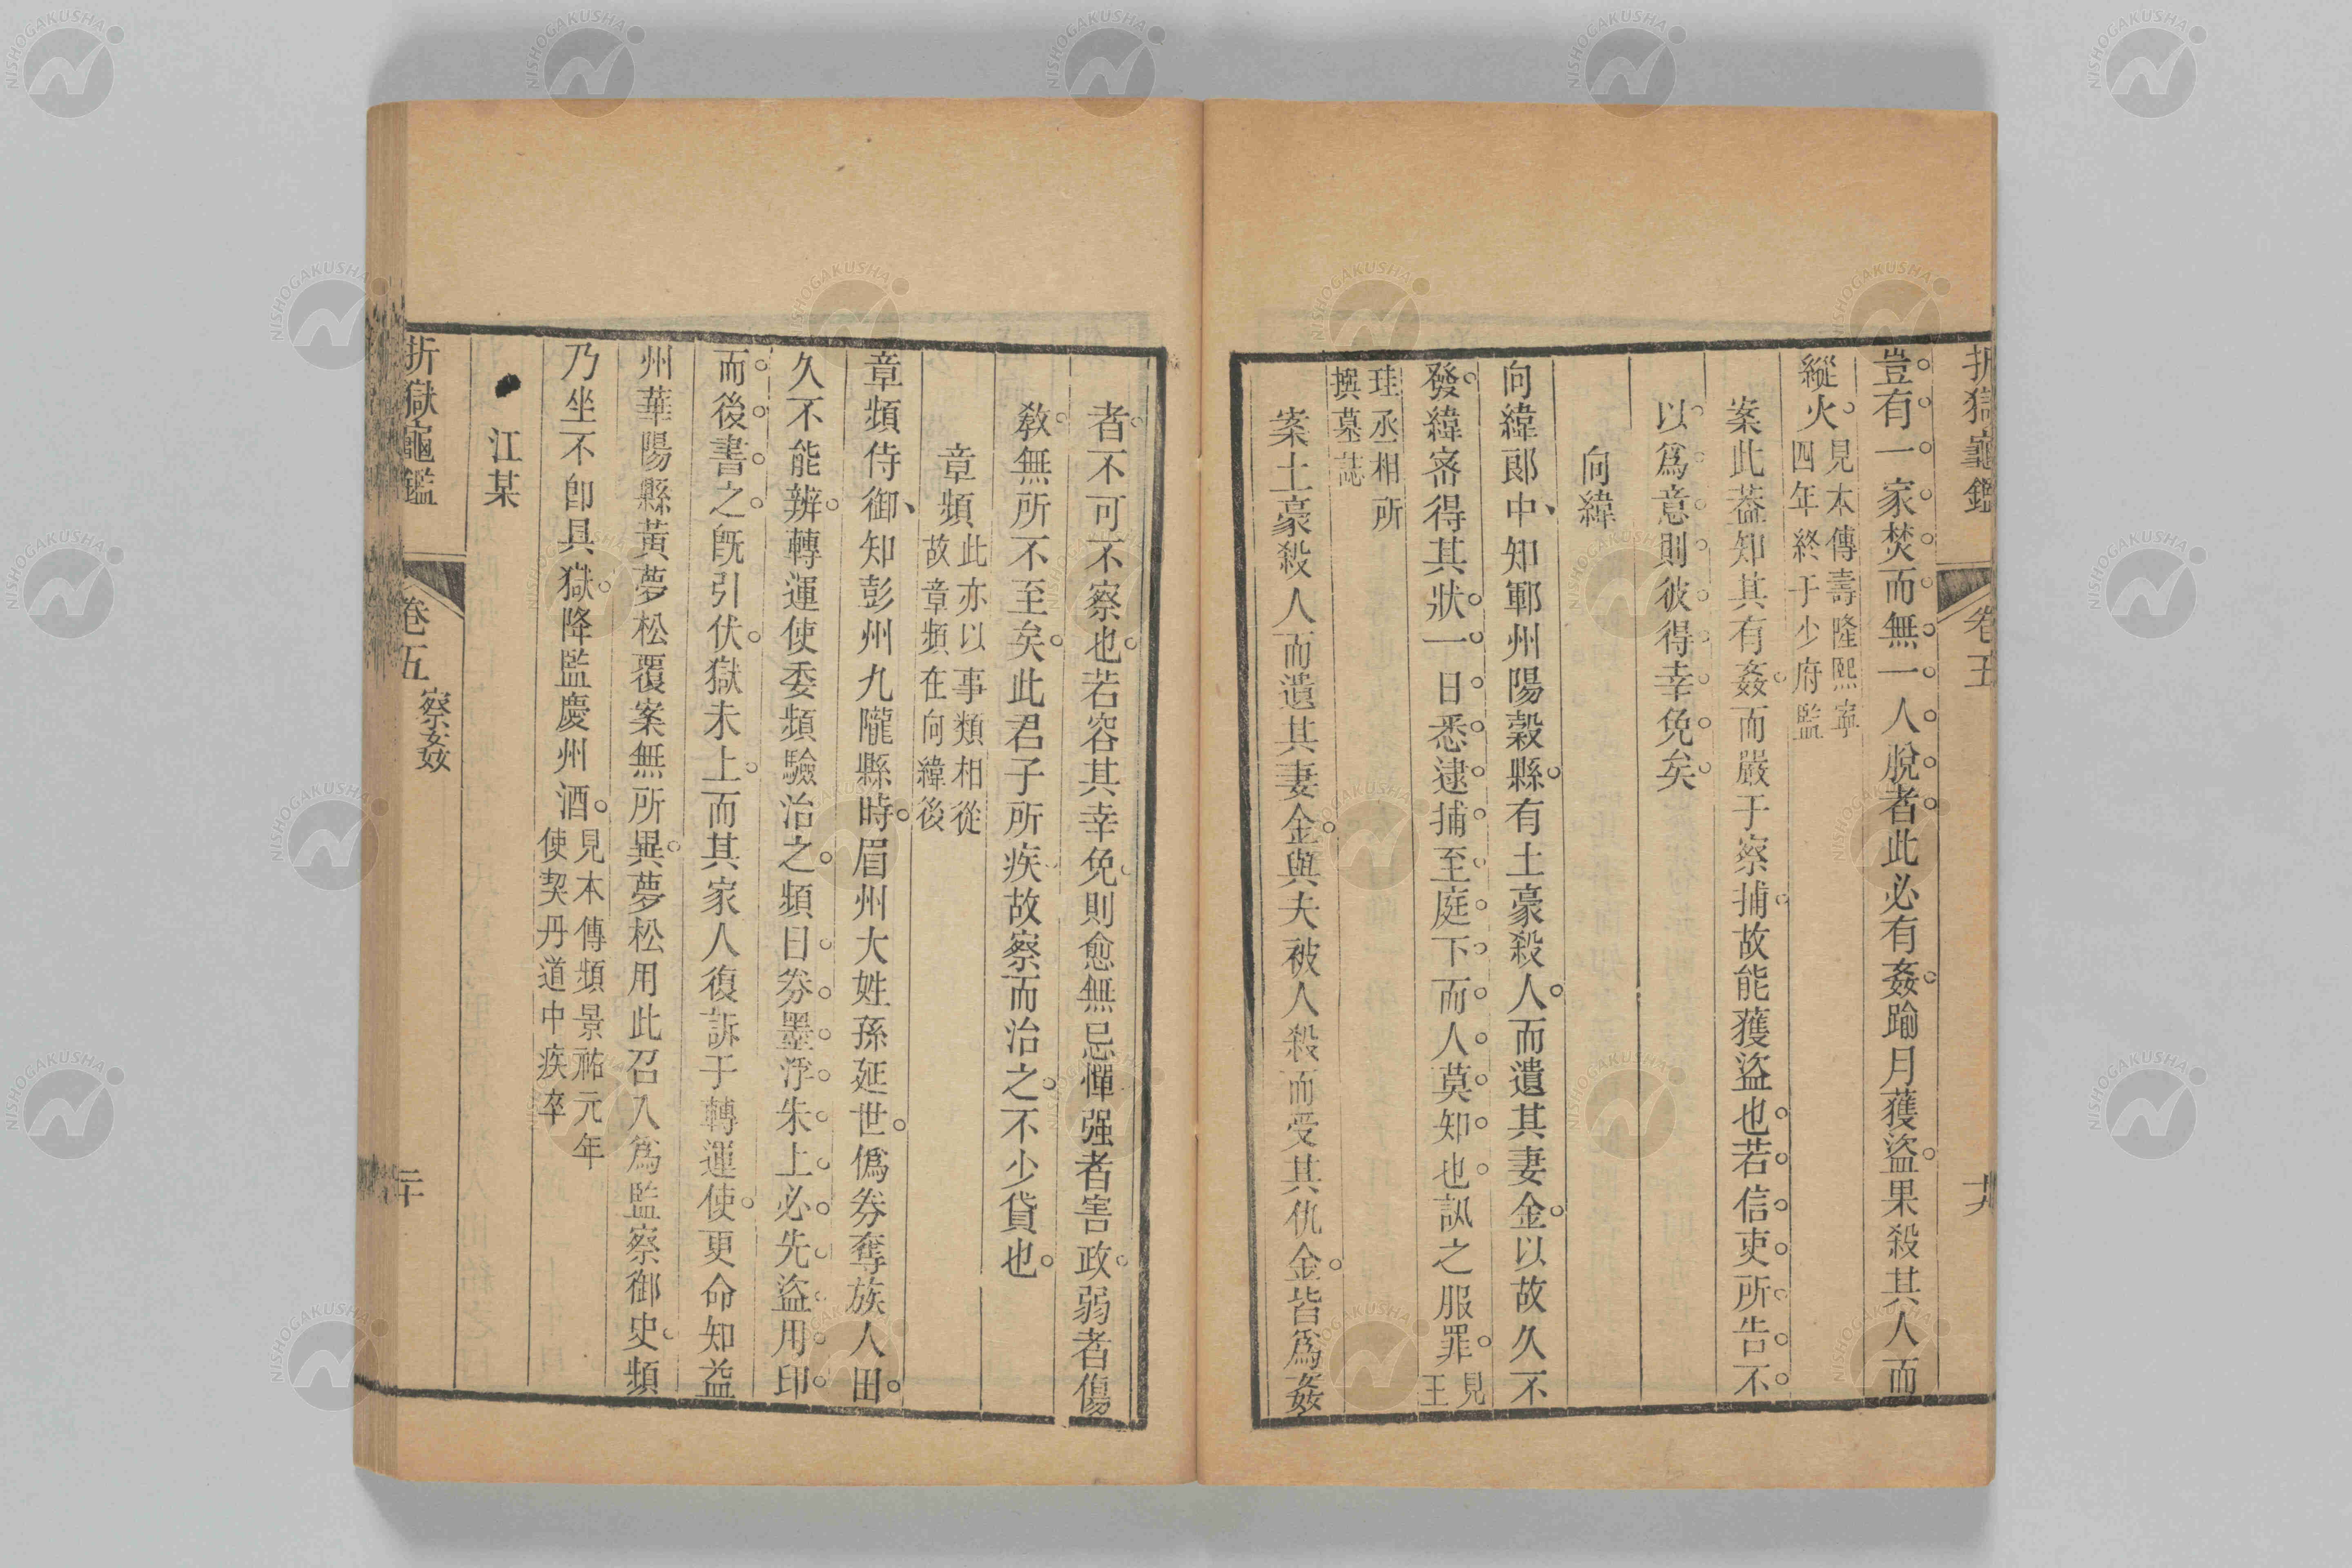 折獄龜鑑 卷五
豈有一家焚而無一人脫者此必有姦踰月獲盜果殺其人而
縱火見本傳壽隆熙寧四年終于少府監
案此葢知其有姦而嚴于察捕故能獲盜也若信吏所告不
以爲意則彼得幸免矣
向緯
向緯郎中知鄆州陽穀縣有土豪殺人而遺其妻金以故久不
發緯密得其狀一日悉逮捕至庭下而人莫知也訊之服罪見王
珪丞相所撰墓誌
案土豪殺人而遺其妻金與夫被人殺而受其仇金皆爲姦
者不可不察也若容其幸免則愈無忌憚强者害政弱者傷
敎無所不至矣此君子所疾故察而治之不少貸也
章頻此亦以事類相從故章頻在向緯後
章頻侍御知彭州九隴縣時眉州大姓孫延世僞券奪族人田
久不能辨轉運使委頻驗治之頻曰券墨浮朱上必先盜用印
而後書之旣引伏獄未上而其家人復訴于轉運使更命知益
州華陽縣黃夢松覆案無所異夢松用此召入爲監察御史頻
乃坐不卽具獄降監慶州酒見本傳頻景祐元年使契丹道中疾卒
江某
折獄龜鑑 卷五 察姦 二十
NISHOGAKUSHA